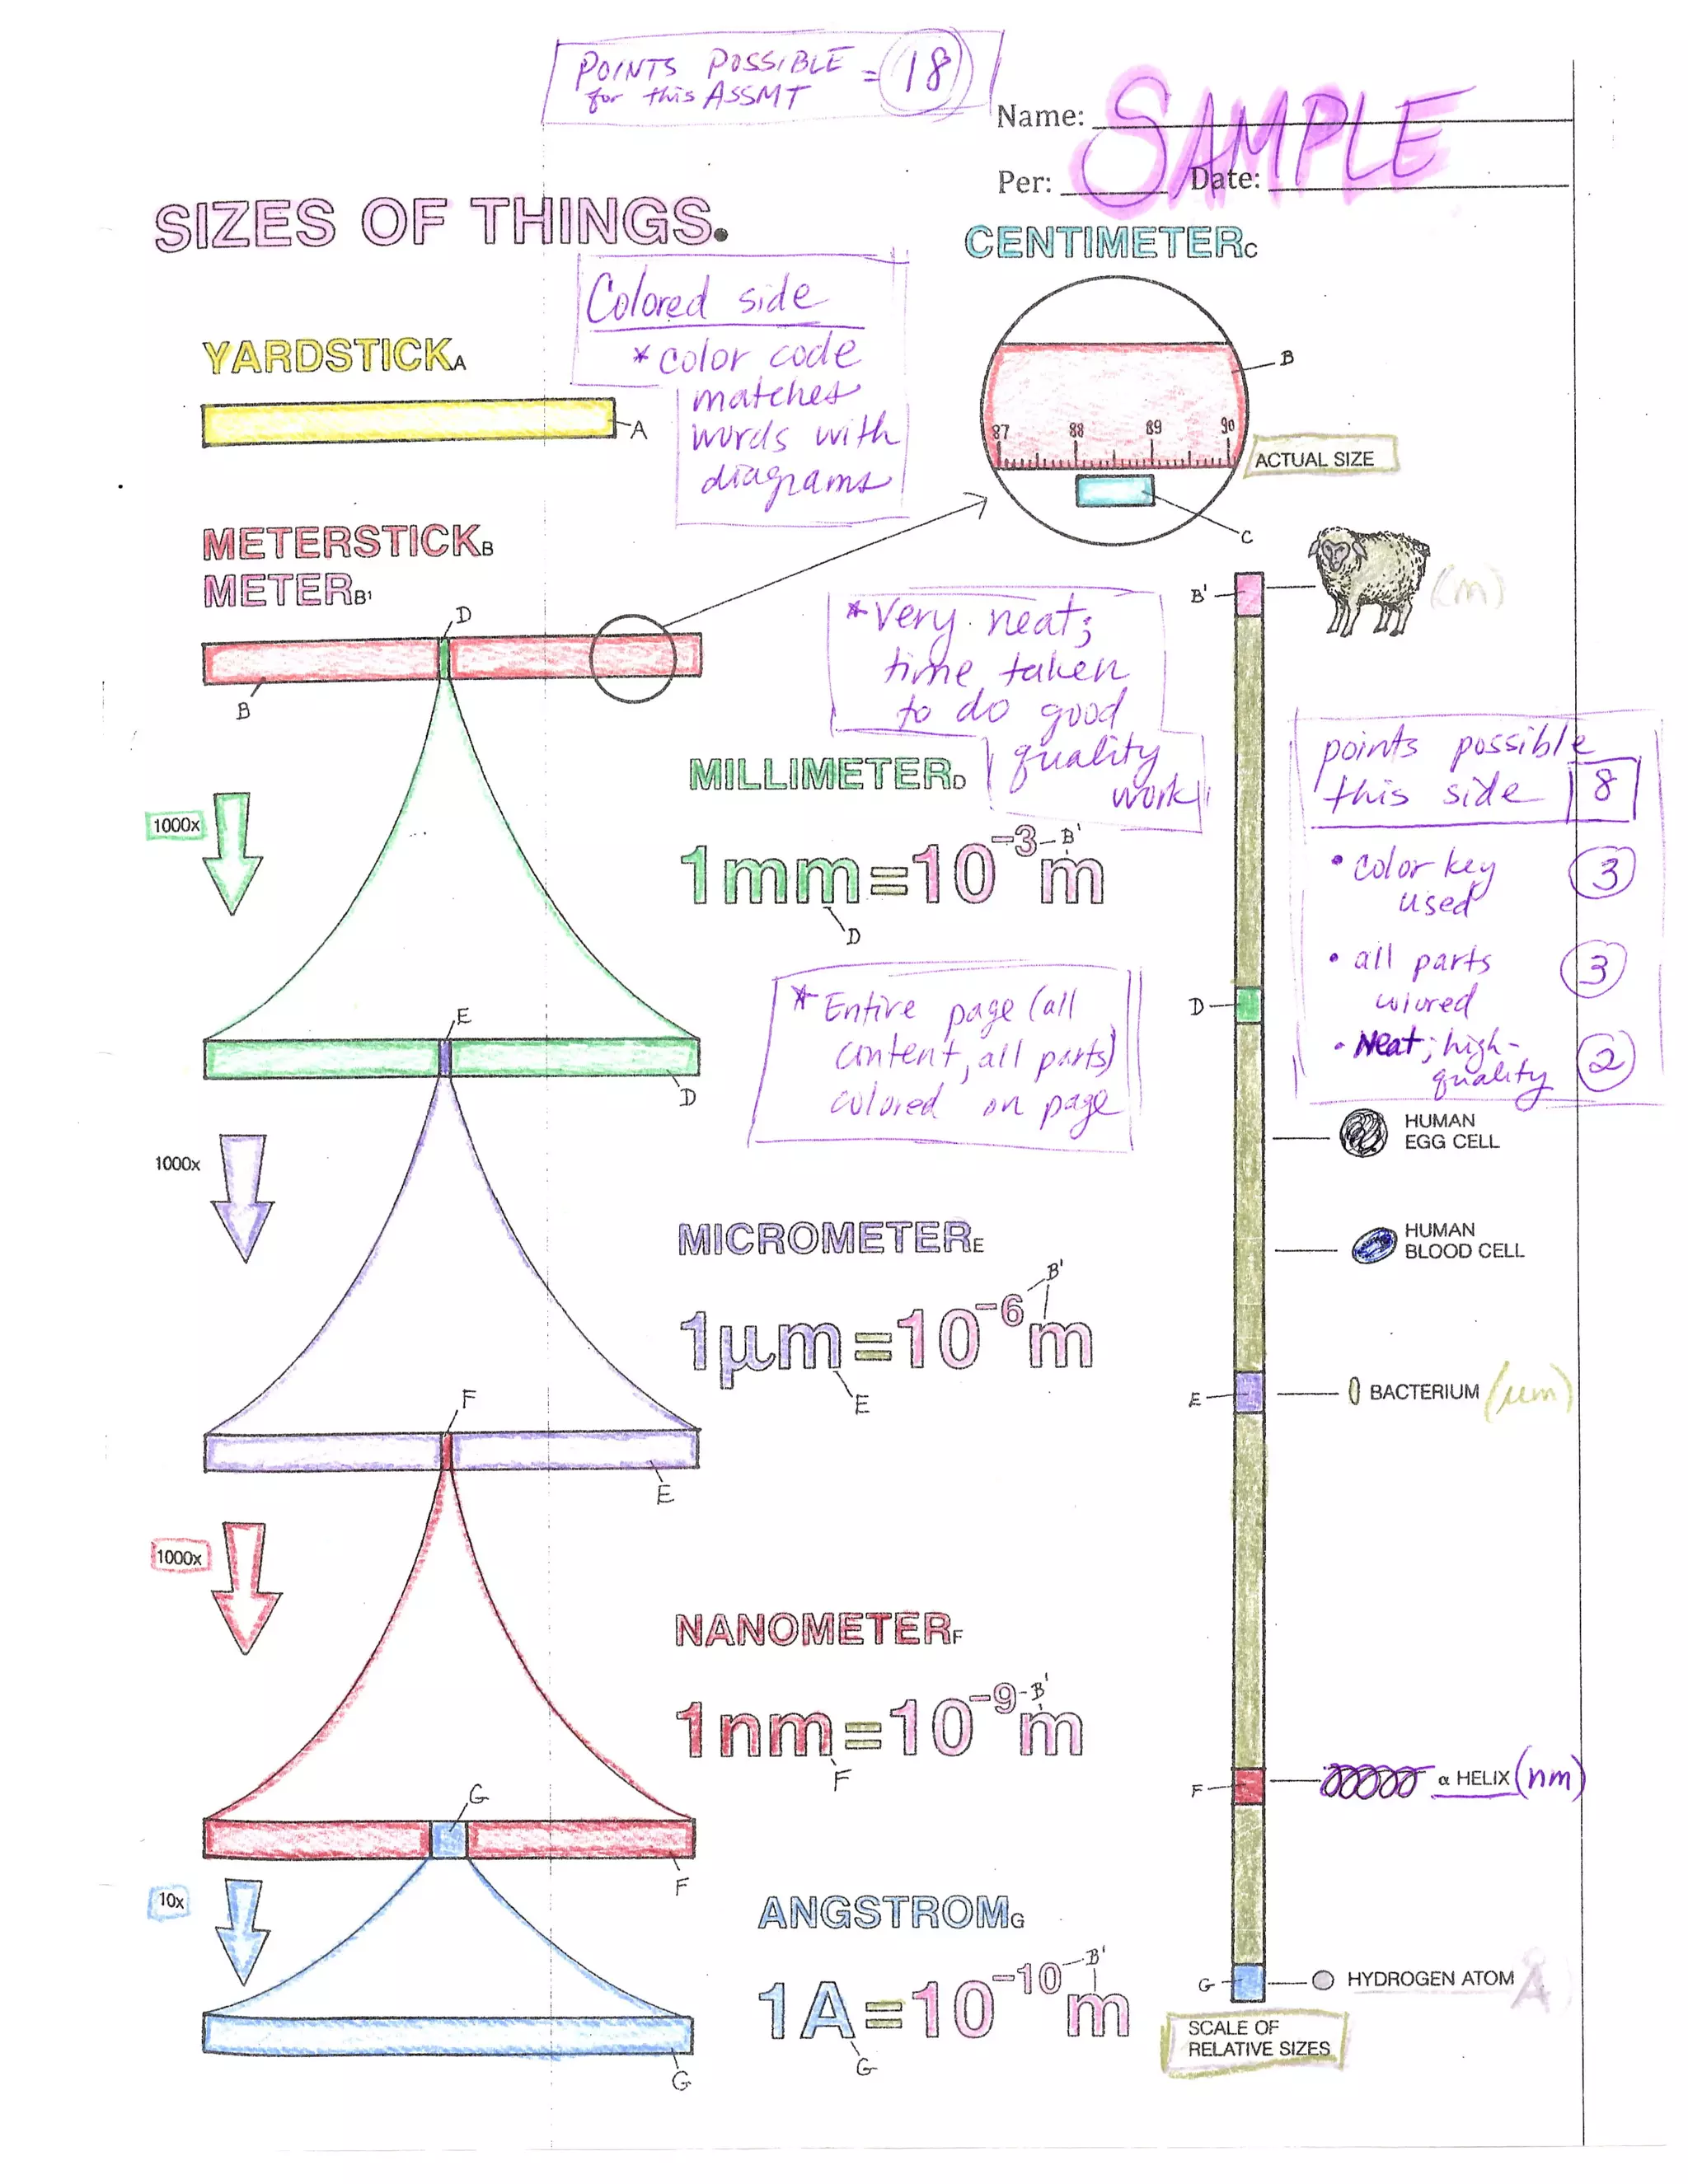 POINTS POSSIBLE
for this ASSMT = 18
Name: SAMPLE
Per: Date:
SIZES OF THINGS.
Colored side
* color code
matches
words with
diagrams
YARDSTICK A
A
METERSTICK B
METER B'
D
B
CENTIMETER C
B
87 88 89 90
ACTUAL SIZE
C
B'
(m)
* Very neat;
time taken
to do good
quality
work
points possible
this side 8
• color key
used 3
• all parts
colored 3
• Neat; high-
quality 2
1000x
MILLIMETER D
1mm=10⁻³m
B'
D
E
D
* Entire page (all
content, all parts)
colored on page
D
HUMAN
EGG CELL
HUMAN
BLOOD CELL
1000x
MICROMETER E
B'
1μm=10⁻⁶m
E
F
E
E
BACTERIUM (μm)
1000x
NANOMETER F
1nm=10⁻⁹m
B'
F
G
F
F
α HELIX (nm)
10x
ANGSTROM G
B'
1A=10⁻¹⁰m
G
G
G
HYDROGEN ATOM Å
SCALE OF
RELATIVE SIZES